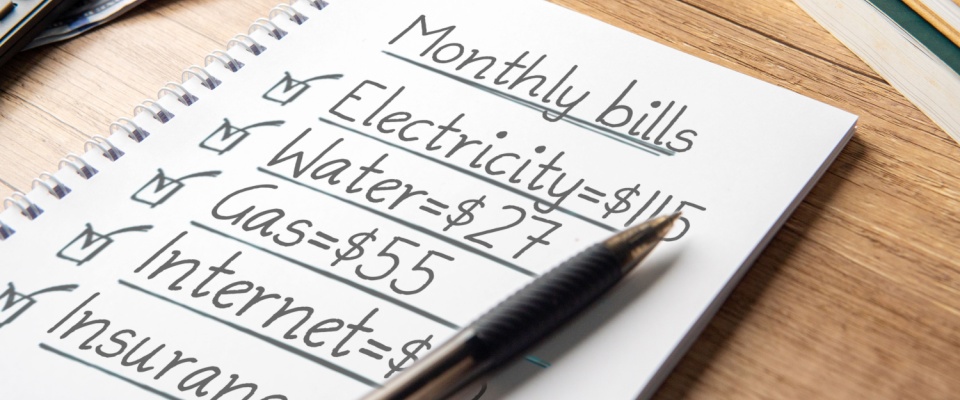 Monthly bills
Electricity=$115
Water=$27
Gas=$55
Internet=$